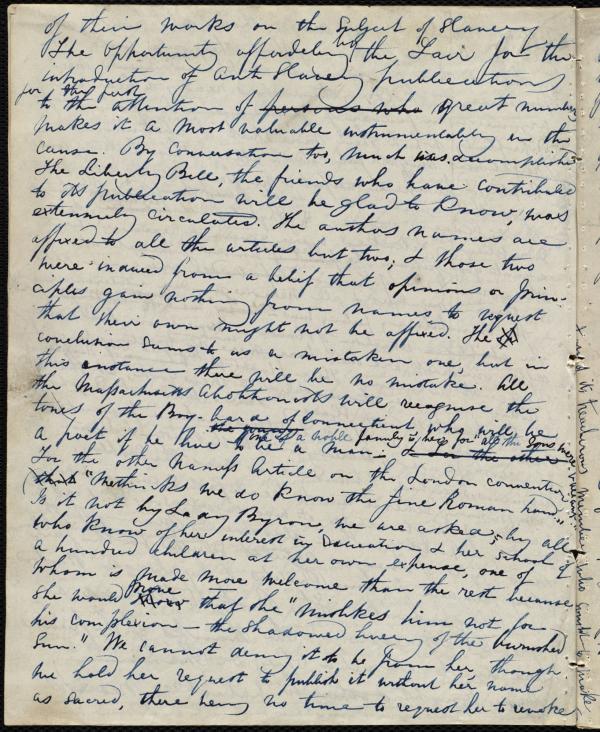 of their works on the Subject of Slavery
The opportunity afforded by the Fair for the
introduction of Anti Slavery publications
for the first
to the attention of persons who great numbers
makes it a most valuable instrumentality in the
cause. By Conversation too, much was accomplished
The Liberty Bell, the friends who have contributed
to its publication will be glad to know, was
extensively circulated. The authors names are
affixed to all the articles but two; & those two
were induced from a belief that opinions or prin-
ciples gain nothing from names to request
that their own might not be affixed. The
conclusion seems to us a mistaken one, but in
this instance there will be no mistake. All
the Massachusetts Abolitionists will recognise the
tones of the Boy-bard of Connecticut, who will be
a poet if he live to be a man:
one of a noble family is he, for "all the Sons were valiant."
For the other nameless Article on the London convention
that "Methinks we do know the fine Roman hand."
Is it not by Lady Byron, we are asked, by all
who know of her interest in Education & her School of
a hundred children at her own expense, one of
whom is made more welcome than the rest because
she would prove that she "Mislikes him not for
his complexion – the Shadowed livery of the burnished
Sun." We cannot deny it to be from her, though
we hold her request to publish it without her name
as sacred, there being no time to request her to revoke